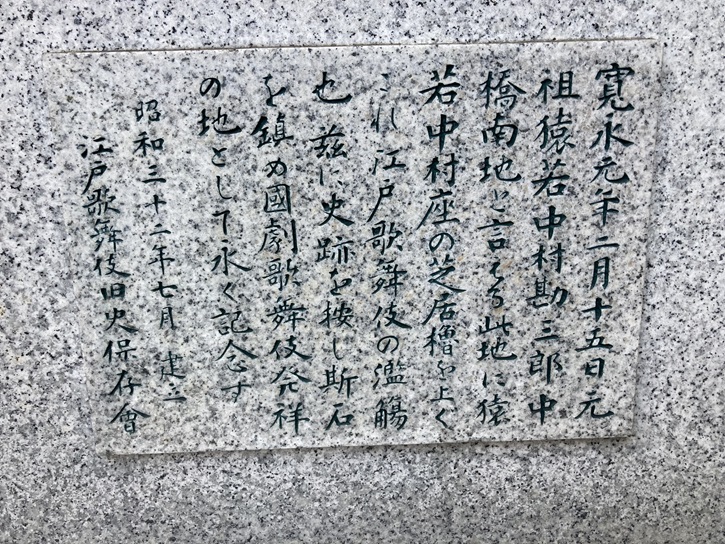 寛永元年二月十五日元
祖猿若中村勘三郎中
橋南地と言える此地に猿
若中村座の芝居櫓を上く
これ江戸歌舞伎の濫觴
也 茲に史跡を按し斯石
を鎮め國劇歌舞伎発祥
の地として永く記念す
昭和三十二年七月 建之
江戸歌舞伎旧史保存會